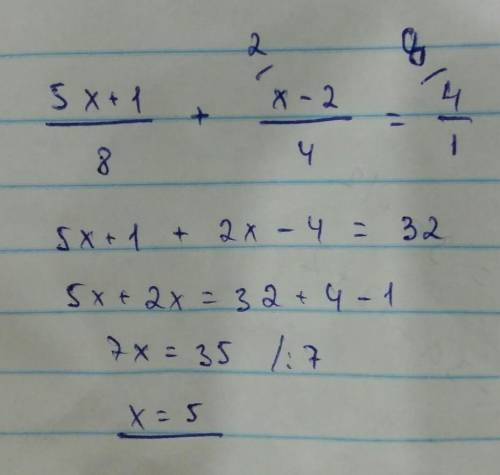 2 8
(5x+1)/8 + (x-2)/4 = 4/1
5x+1 + 2x-4 = 32
5x+2x=32+4-1
7x=35 /:7
x=5